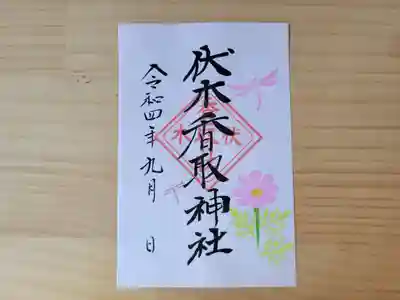 伏木香取神社
令和四年九月 日